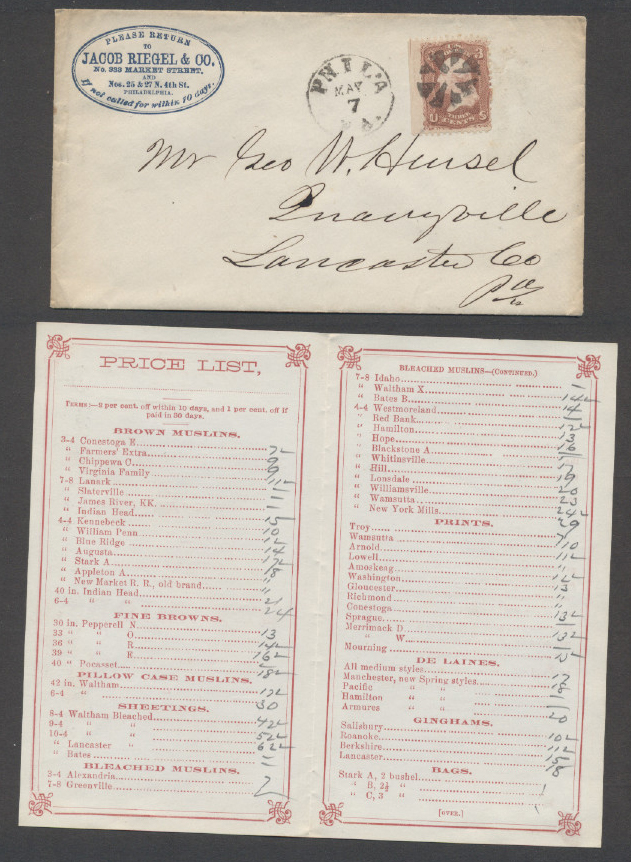 PLEASE RETURN
TO
JACOB RIEGEL & CO.
No. 333 MARKET STREET,
AND
Nos. 25 & 27 N. 4th St.
PHILADELPHIA.
If not called for within 10 days.
PHIL'A
MAY
7
PA.
U THREE CENTS S
Mr Geo W. Hensel
Quarryville
Lancaster Co
Pa
PRICE LIST,
TERMS:—2 per cent. off within 10 days, and 1 per cent. off if
paid in 30 days.
BROWN MUSLINS.
3-4 Conestoga E
" Farmers' Extra 7
" Chippewa C 9
" Virginia Family 9
7-8 Lanark 11
" Slaterville
" James River, KK
" Indian Head
4-4 Kennebeck 15
" William Penn 10
" Blue Ridge
" Augusta 14
" Stark A 17
" Appleton A 18
" New Market R. R., old brand "
40 in. Indian Head 21
6-4 " 24
FINE BROWNS.
30 in. Pepperell N.
33 " " O 13
36 " " R 14
39 " " E 16
40 " Pocasset 18
PILLOW CASE MUSLINS.
42 in. Waltham
6-4 " 30
SHEETINGS.
8-4 Waltham Bleached 42
9-4 " 52
10-4 " 62
" Lancaster "
" Bates
BLEACHED MUSLINS.
3-4 Alexandria
7-8 Greenville
BLEACHED MUSLINS—(CONTINUED.)
7-8 Idaho
" Waltham X
" Bates B 14
4-4 Westmoreland 14
" Red Bank
" Hamilton 12
" Hope 13
" Blackstone A 16
" Whitinsville
" Hill 17
" Lonsdale 19
" Williamsville 20
" Wamsutta 23
" New York Mills 24
PRINTS. 29
Troy
Wamsutta
Arnold 10
Lowell 11
Amoskeag "
Washington 12
Gloucester 13
Richmond "
Conestoga "
Sprague 13
Merrimack D
" W 13
Mourning
DE LAINES.
All medium styles 17
Manchester, new Spring styles 18
Pacific " "
Hamilton " "
Armures " " 20
GINGHAMS.
Salisbury
Roanoke 10
Berkshire 11
Lancaster 15
BAGS. 18
Stark A, 2 bushel
" B, 2½ "
" C, 3 "
[OVER.]